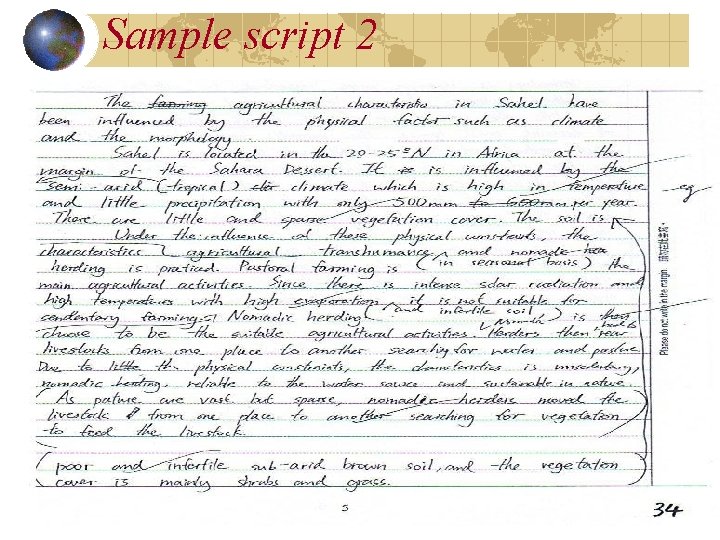 Sample script 2
The farming agricultural characteristics in Sahel have
been influenced by the physical factor such as climate
and the morphology
Sahel is located in the 20-25°N in Africa at the
margin of the Sahara Dessert. It is is influenced by the
semi-arid (tropical) climate which is high in temperature eg
and little precipitation with only 500mm to 600mm per year.
There are little and sparse vegetation cover. The soil is
Under the influence of these physical constraints, the
characteristics agricultural transhumance, and nomadic
herding is praticed. Pastoral farming is (in seasonal basis) the
main agricultural activities. Since there is intense solar radiation and
high temperatures with high evaporation, it is not suitable for
sendentary farming. Nomadic herding (and infertile soil) is
choose to be the suitable agricultural activities. Herders then rear
livestocks from one place to another searching for water and pasture
Due to little the physical constraints, the characteristics is
nomadic herding, reliable to the water source and sustainable in nature.
As pature are vast but sparse, nomadic herders moved the
livestock from one place to another searching for vegetation
to feed the livestock.
poor and infertile sub-arid brown soil, and the vegetation
cover is mainly shrubs and grass.
Please do not write in the margin.
5
34